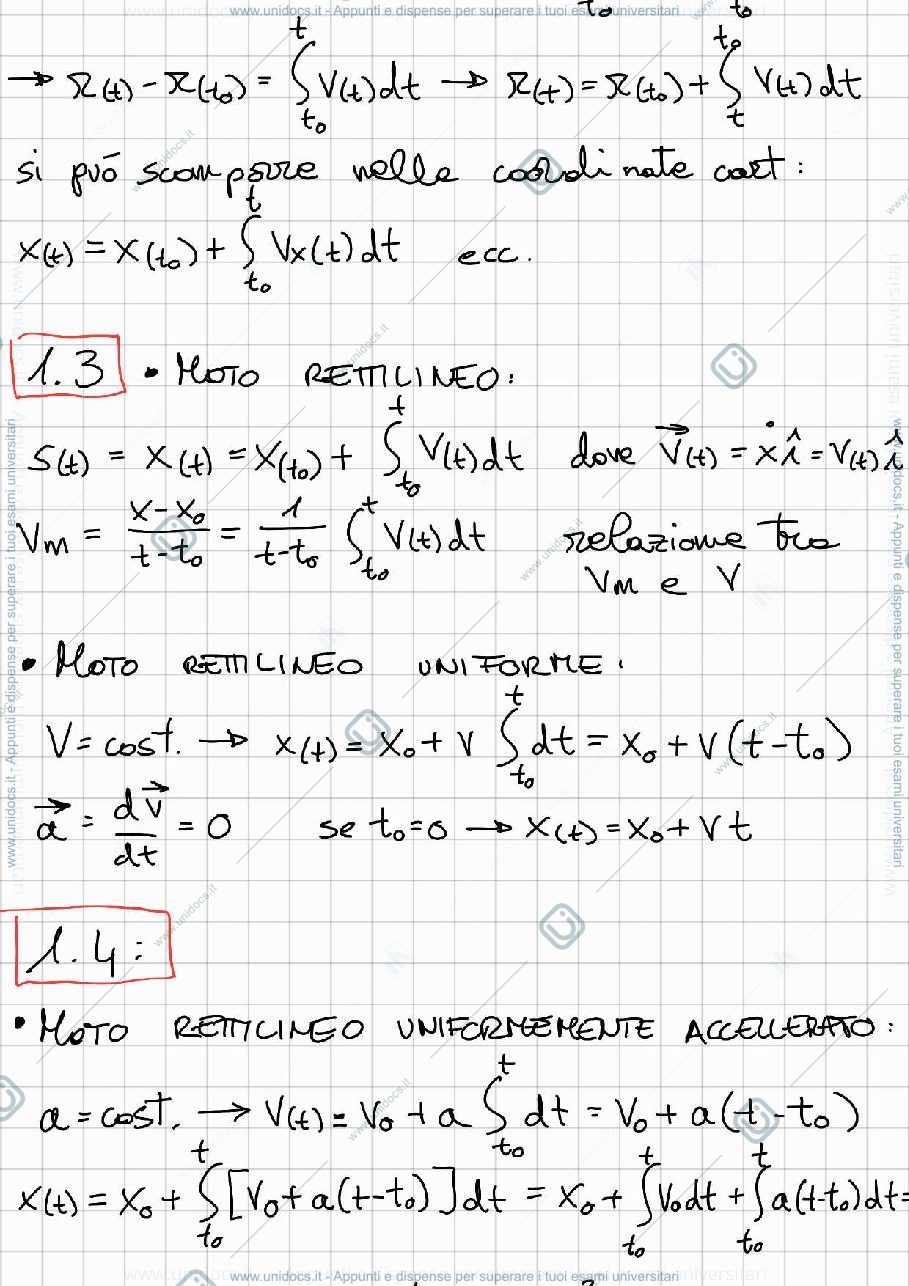 www.unidocs.it - Appunti e dispense per superare i tuoi esami universitari
t₀ t₀
→ r(t) - r(t₀) = ∫_{t₀}^{t} V(t)dt → r(t) = r(t₀) + ∫_{t}^{t₀} V(t)dt
si può scomporre nelle coordinate cart:
x(t) = x(t₀) + ∫_{t₀}^{t} Vx(t)dt ecc.
1.3 • MOTO RETTILINEO:
S(t) = x(t) = x(t₀) + ∫_{t₀}^{t} V(t)dt dove v⃗(t) = ẋ î = V(t) î
Vm = (x-x₀)/(t-t₀) = 1/(t-t₀) ∫_{t₀}^{t} V(t)dt relazione tra
Vm e V
• MOTO RETTILINEO UNIFORME:
V = cost. → x(t) = x₀ + V ∫_{t₀}^{t} dt = x₀ + V(t-t₀)
a⃗ = dv⃗/dt = 0 se t₀=0 → x(t) = x₀ + Vt
1.4:
• MOTO RETTILINEO UNIFORMEMENTE ACCELLERATO:
a = cost. → V(t) = V₀ + a ∫_{t₀}^{t} dt = V₀ + a(t-t₀)
x(t) = x₀ + ∫_{t₀}^{t} [V₀ + a(t-t₀)]dt = x₀ + ∫_{t₀}^{t} V₀dt + ∫_{t₀}^{t} a(t-t₀)dt =
www.unidocs.it - Appunti e dispense per superare i tuoi esami universitari